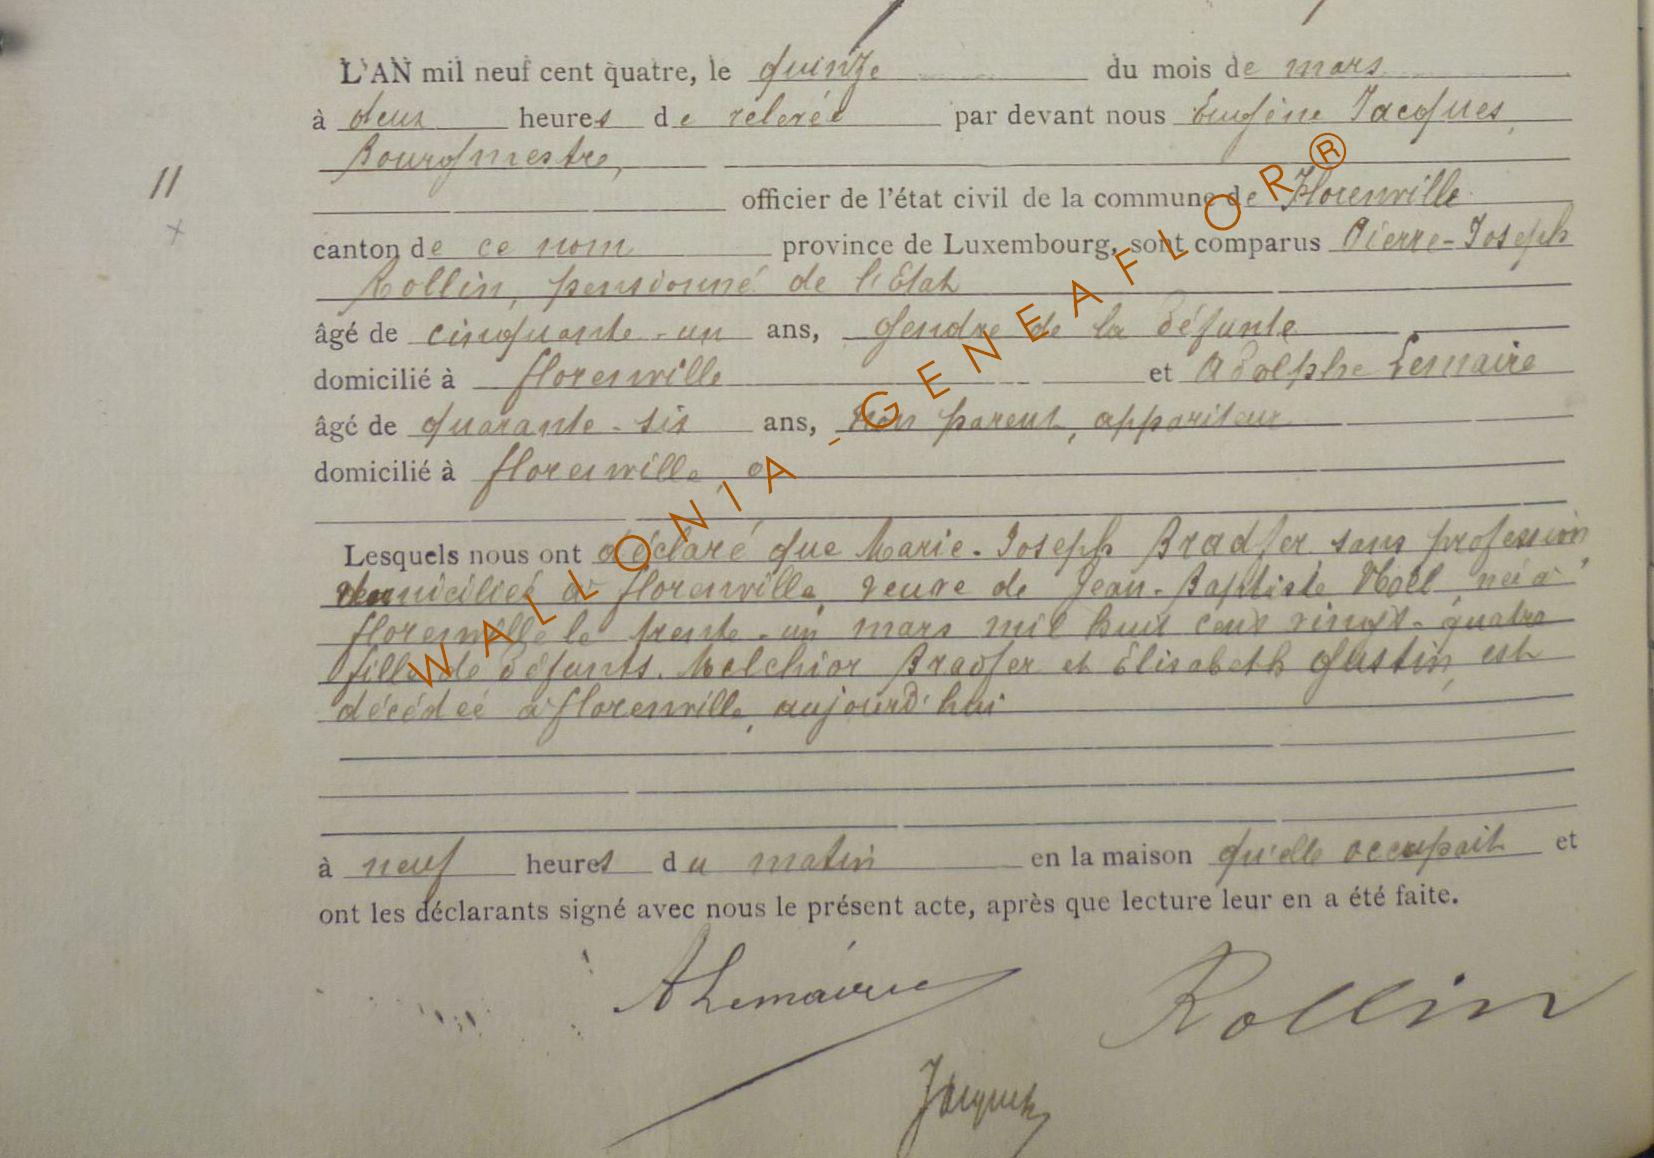 L'AN mil neuf cent quatre, le quinze du mois de mars
à deux heures de relevée par devant nous Eugène Jacques,
Bourgmestre,
11
officier de l'état civil de la commune de Florenville
canton de ce nom province de Luxembourg, sont comparus Pierre-Joseph
Rollin, pensionné de l'Etat
âgé de cinquante-un ans, gendre de la défunte
domicilié à florenville et Adolphe Lemaire
âgé de quarante-six ans, non parent, appariteur
domicilié à florenville,
Lesquels nous ont déclaré que Marie-Joseph Bradfer sans profession
domiciliée à florenville, veuve de Jean-Baptiste Noël, née à
florenville le trente-un mars mil huit cent vingt-quatre
fille de défunts Melchior Bradfer et Elisabeth Gustin, est
décédée à florenville, aujourd'hui
à neuf heures du matin en la maison qu'elle occupait et
ont les déclarants signé avec nous le présent acte, après que lecture leur en a été faite.
ALemaire
Rollin
Jacques
WALLONIA - GENEAFLOR®